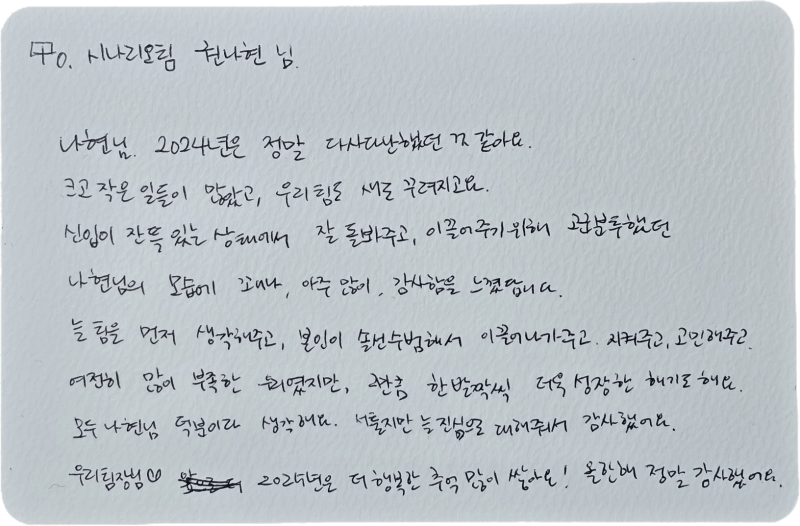 To. 시나리오팀 권나현 님.
나현님. 2024년은 정말 다사다난했던 것 같아요.
크고 작은 일들이 많았고, 우리팀도 새로 꾸려지고요.
신입이 잔뜩 있는 상태에서 잘 돌봐주고, 이끌어주기 위해 고군분투했던
나현님의 모습에 꽤나, 아주 많이, 감사함을 느꼈답니다.
늘 팀을 먼저 생각해주고, 본인이 솔선수범해서 이끌어나가주고. 지켜주고, 고민해주고.
여전히 많이 부족한 우리였지만, 한발짝씩 더욱 성장한 해기도 해요.
모두 나현님 덕분이라 생각해요. 서툴지만 늘 진심으로 대해줘서 감사했어요.
우리팀장님♡ 2025년은 더 행복한 추억 많이 쌓아요! 올한해 정말 감사했어요.